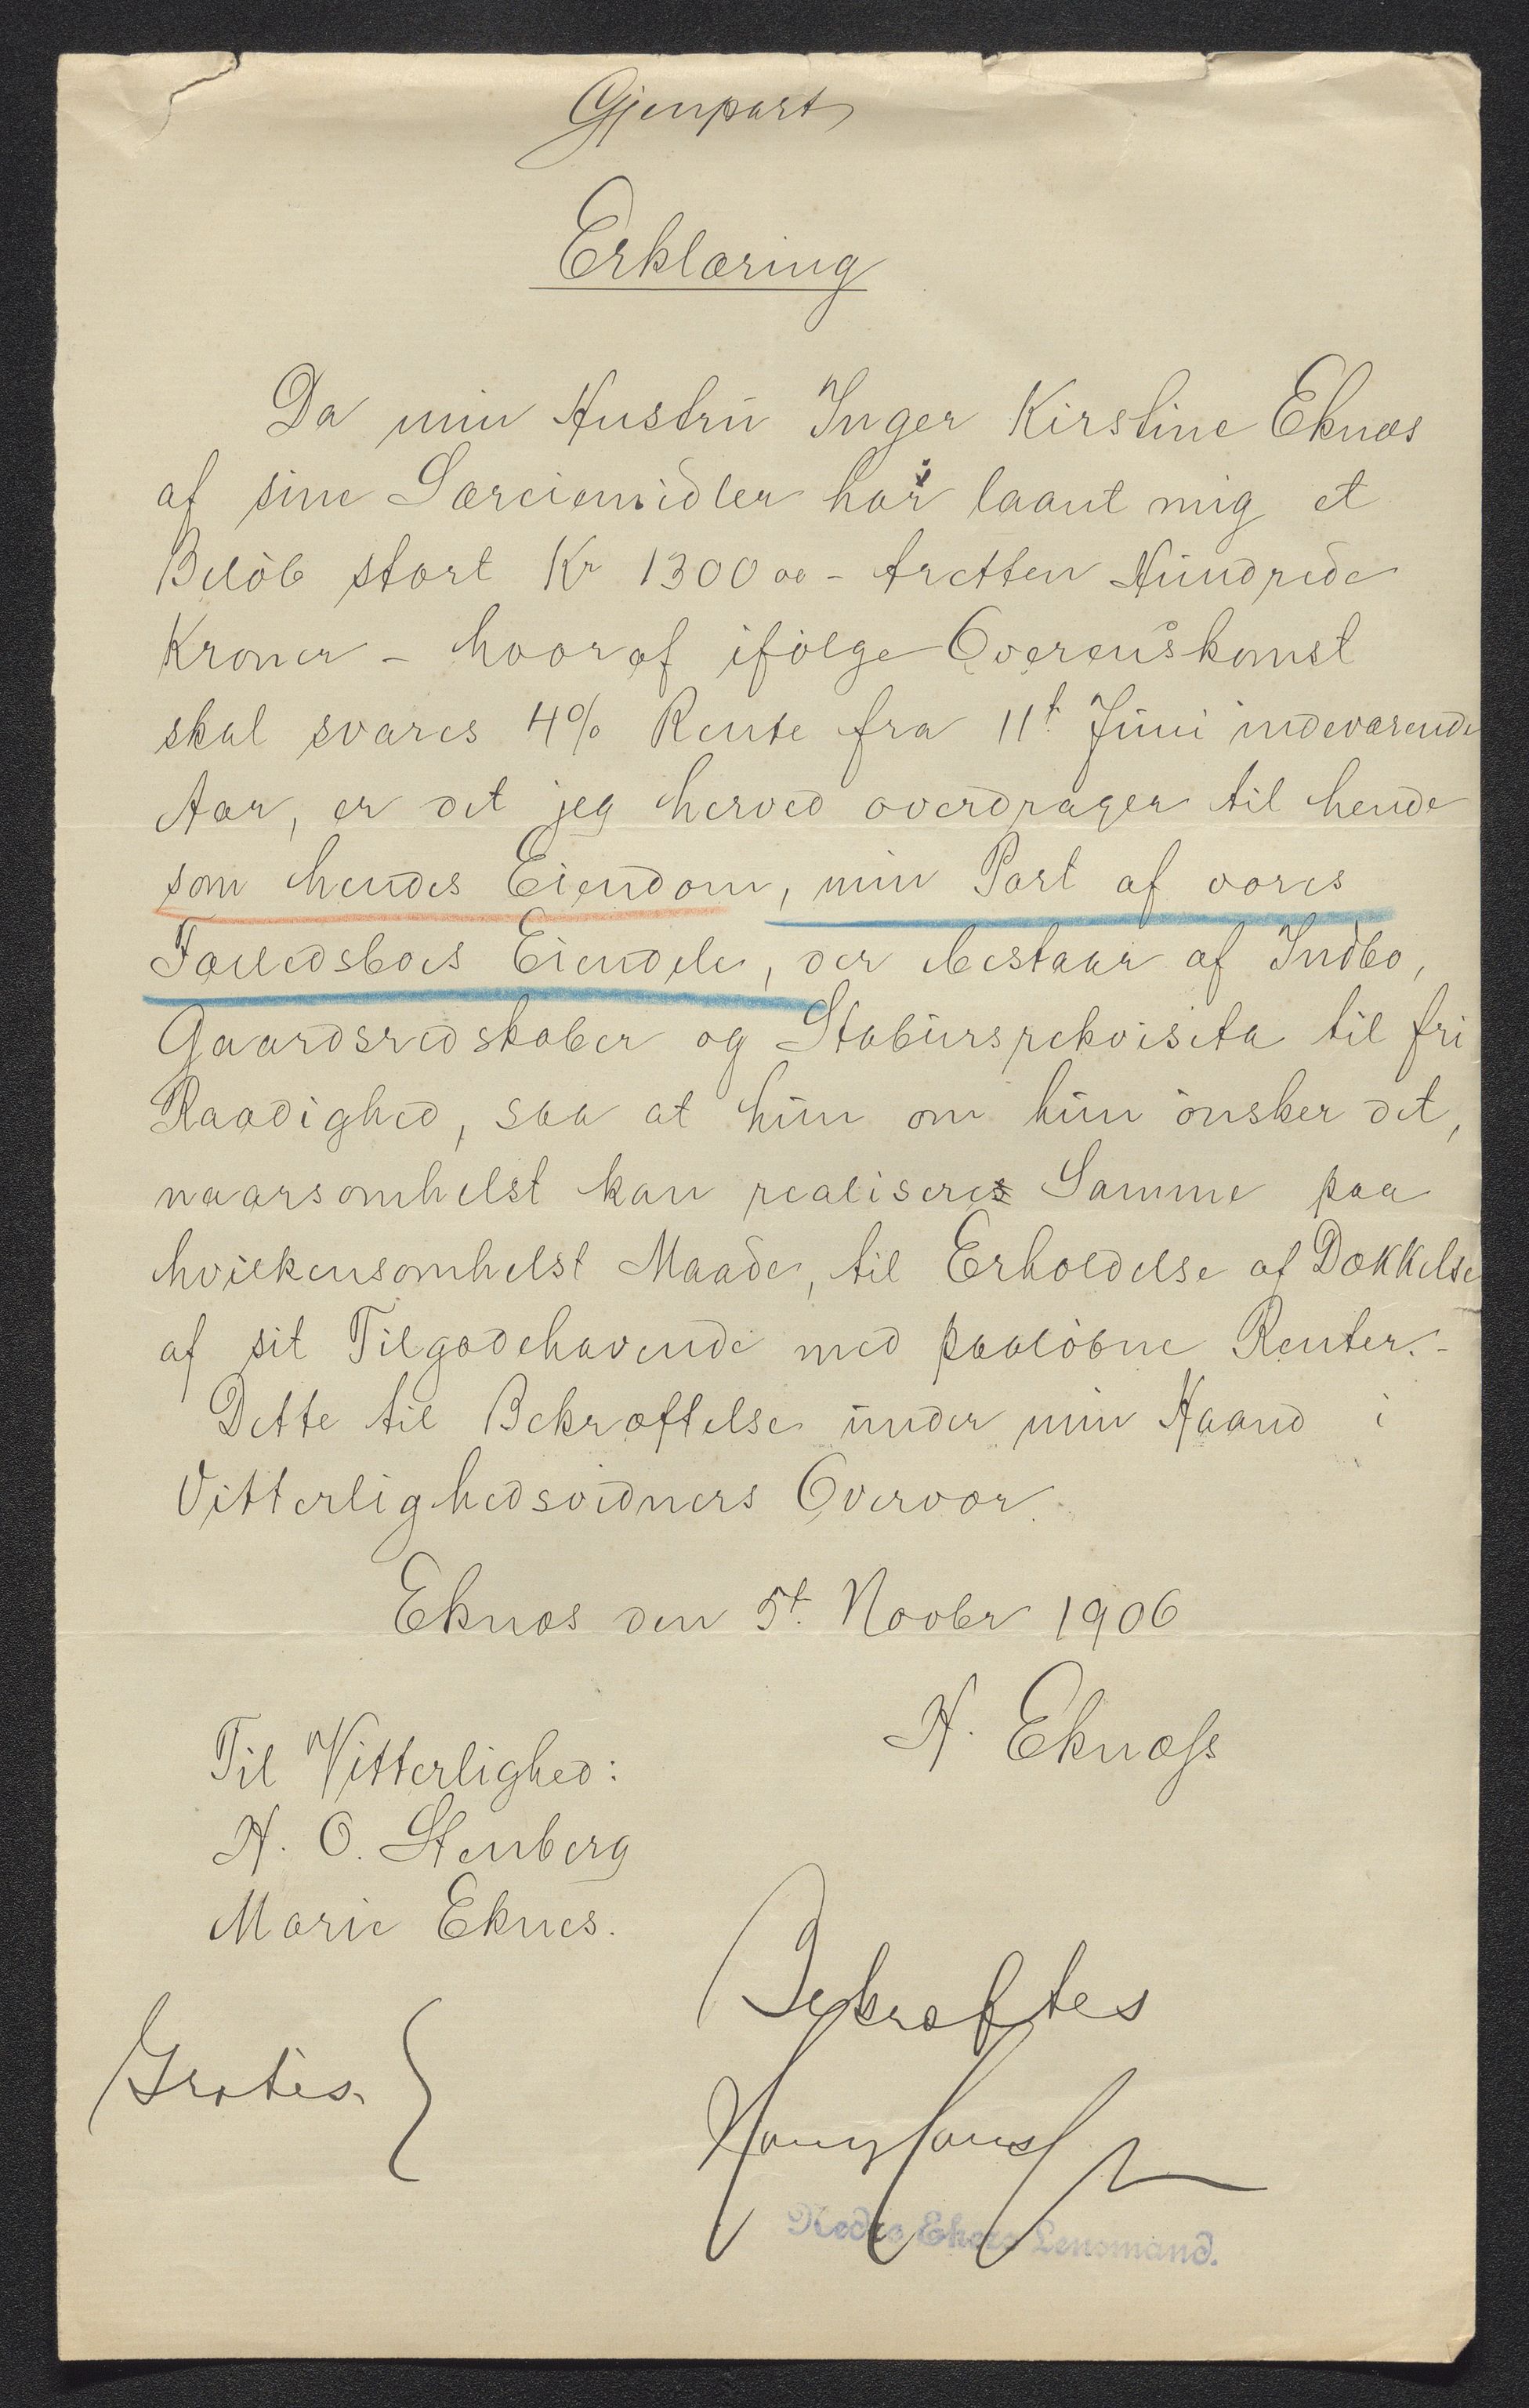 Gjenpart
Erklæring
Da min Hustru Inger Kirstine Eknæs
af sine Særeiemidler har laant mig et
Beløb stort Kr 1300 00 - tretten Hundrede
Kroner - hvoraf ifølge Overenskomst
skal svares 4% Rente fra 11t Juni indeværende
Aar, er det jeg herved overdrager til hende
som hendes Eiendom, min Part af vores
Fælledsboes Eiendele, der bestaar af Indbo,
Gaardsredskaber og Stabursrekvisita til fri
Raadighed, saa at hun om hun ønsker det,
naarsomhelst kan realisere Samme paa
hvilkensomhelst Maade, til Erholdelse af Dækkelse
af sit Tilgodehavende med paaløbne Renter. -
Dette til Bekræftelse under min Haand i
Vitterlighedsvidners Overvær.
Eknæs den 5t. Novbr 1906
H. Eknæss
Til Vitterlighed:
H. O. Stenberg
Marie Eknes.
Bekræftes
Gratis
Nedre Ekers Lensmand.